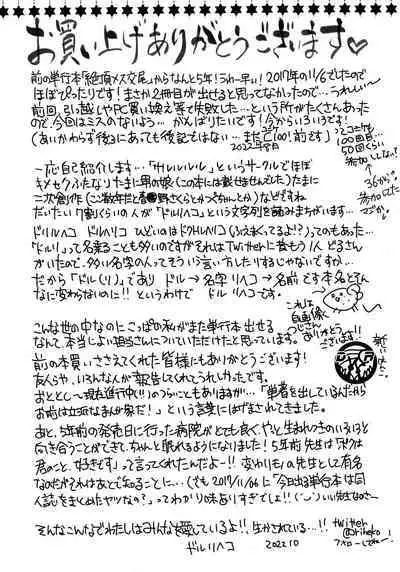 お買い上げありがとうございます♡
前の単行本「絶頂メス交尾」からなんと5年！うわー早い！2017年の11/6でしたので
ほぼぴったりです！まさか2冊目が出せると思ってなかったので…うれしい〜
前回、引っ越しやPC買い換え等で失敗した…という所がたくさんあった
ので、今回はミスのないよう… がんばりたいです！今からいろいろです！
(あいかわらず後にあっても後記ではない… またC100前です)
2022年8月
コミケ
100回目…
50回くらい
参加してない？
36から
参加してた
一応自己紹介します…「サルルルルル」というサークルでほぼ
キメセクふたなりたまに男の娘(この本には載せませんでした)たまに
二次創作(ここ数年だと
さくらとかつちゃんとか)などですね
だいたい7割くらいの人が「ドルリヘコ」という文字列を読みまちがいます…
ドルリヘコ ドルリヘコ ひどいのはドクトルリヘコ(うえまくてるよ!?)ってのもあった…
「ドルリ」って名乗ることも多いのですがそれはTwitterに昔もう1人どるさん
がいたので、多い名字の人ってそういう言い方したりするじゃないですか…
だから「ドル(リ)」であり ドル→名字 リヘコ→名前 です本名とぜん
なに変わらないのに!! というわけで ドル リヘコです。
これは
自画像
こんな世の中なのに こっぱの私がまた単行本 出せる
なんて、本当によい担当さんについていただけたと思っています。
ありがとう
ございます！
前の本買いささえてくれた皆様にもありがとうございます！
友人らや、いろんな人が報告してくれてうれしかったです。
「単著を出しているんだから
お前は立派なまんが家だ！」という言葉にはげまされてきました。
あと、5年前の発売日に行った病院がとても良く、やっと生まれつきのいろいろと
向き合うことができて、ちゃんと眠れるようになりました！5年前 先生は「ボクは
君のこと、好きです」って言ってくれたんだよー!!
先生として有名
なのだがそれはあとで知ることに…
そんなこんなでわたしはみんなを愛しているよ!! 生かされている…!!
ドルリヘコ
2022.10
twitter
@riheko
フォローしてねー！